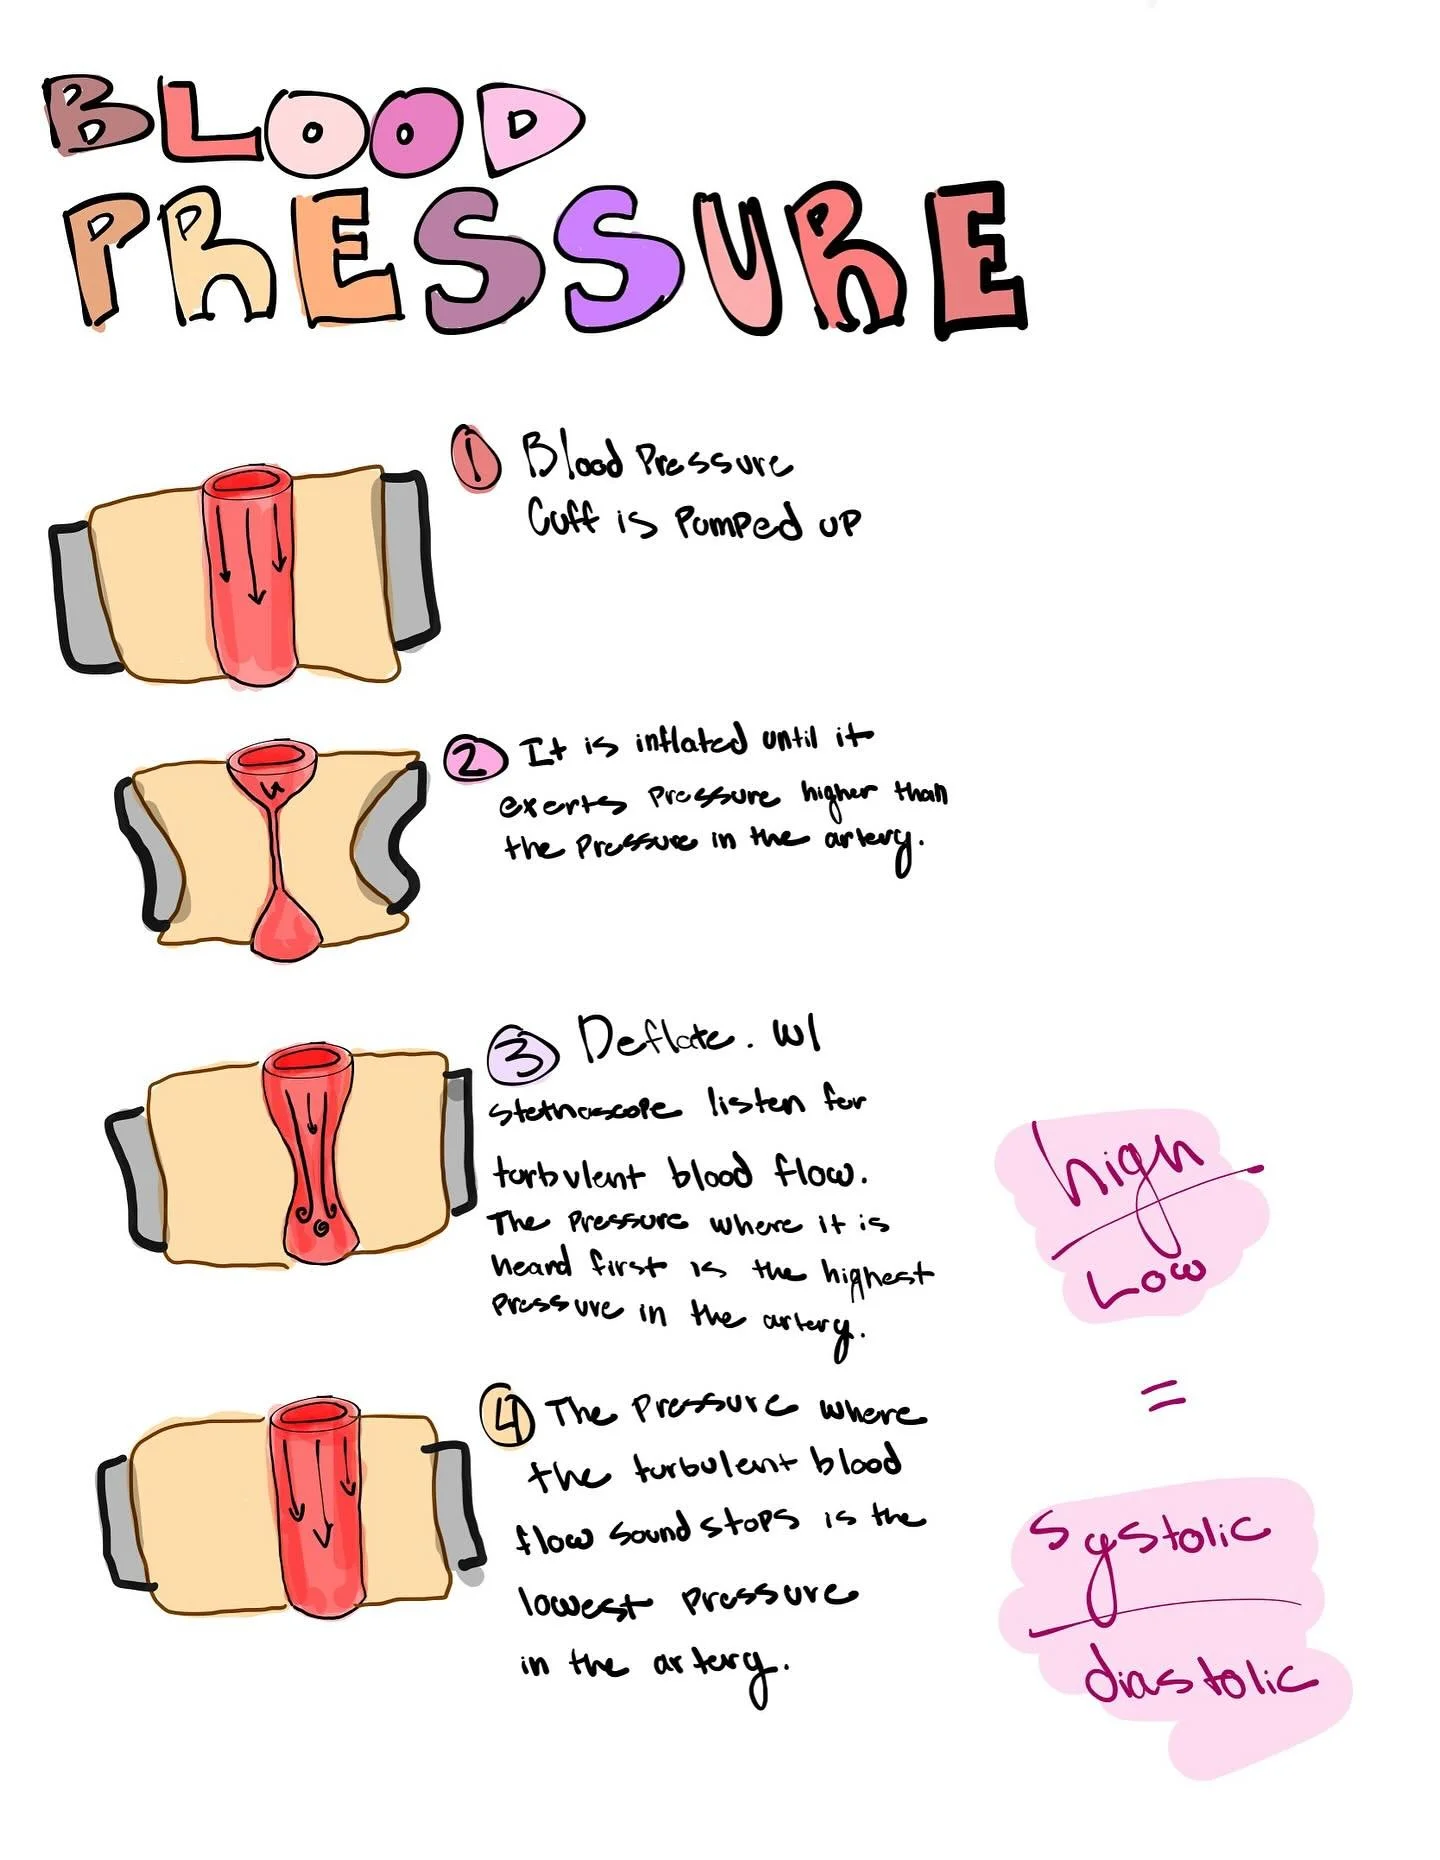 BLOOD
PRESSURE
1 Blood Pressure
Cuff is Pumped up
2 It is inflated until it
exerts pressure higher than
the pressure in the artery.
3 Deflate. w/
stethoscope listen for
turbulent blood flow.
The pressure where it is
heard first is the highest
pressure in the artery.
high
Low
=
4 The pressure where
the turbulent blood
flow sound stops is the
lowest pressure
in the artery.
systolic
diastolic